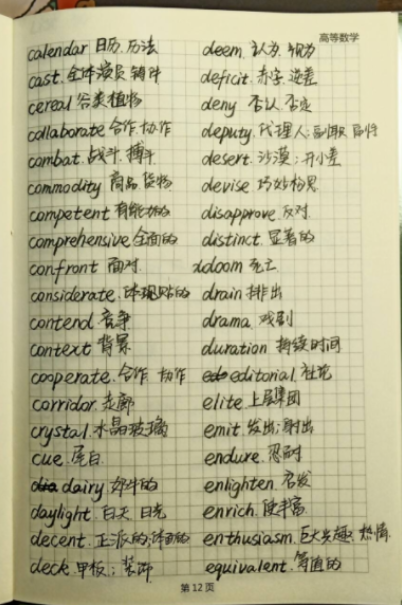 高等数学
calendar 日历、历法
cast. 全体演员 铸件
cereal 谷类植物
collaborate 合作.协作
combat. 战斗.搏斗
commodity 商品 货物
competent 有能力的
comprehensive 全面的
confront 面对.
considerate. 体现贴的
contend 竞争
context 背景
cooperate. 合作 协作
corridor. 走廊
crystal. 水晶玻璃
cue. 尾白
dairy. 奶牛的
daylight. 白天 日光
decent. 正派的;体面的
deck. 甲板; 装饰
deem. 认为.视为
deficit. 赤字.逆差
deny 否认 否定
deputy. 代理人;副职
desert. 沙漠;开小差
devise. 巧妙构思
disapprove. 反对.
distinct. 显著的
doom 死亡
drain 排出
drama. 戏剧
duration 持续时间
editorial. 社论
elite. 上层集团
emit. 发出;射出
endure. 忍耐
enlighten. 启发
enrich. 使丰富
enthusiasm. 巨大兴趣. 热情
equivalent. 等值的
第 12 页